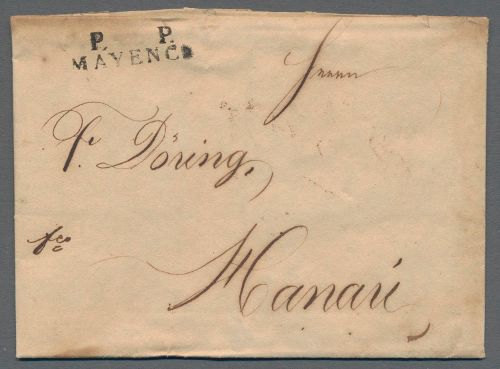 P. P.
MAYENCE
Herrn
F. Döring,
fco
Hanau